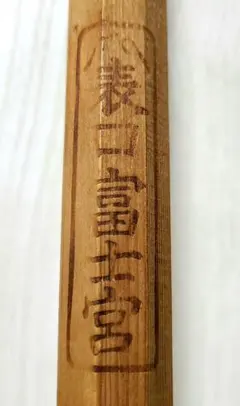 表口富士宮